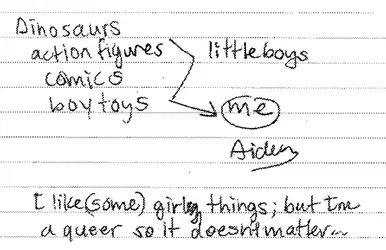 Dinosaurs
action figures
little boys
comics
boy toys
me
Aiden
I like (some) girly things; but I'm
a queer so it doesn't matter~